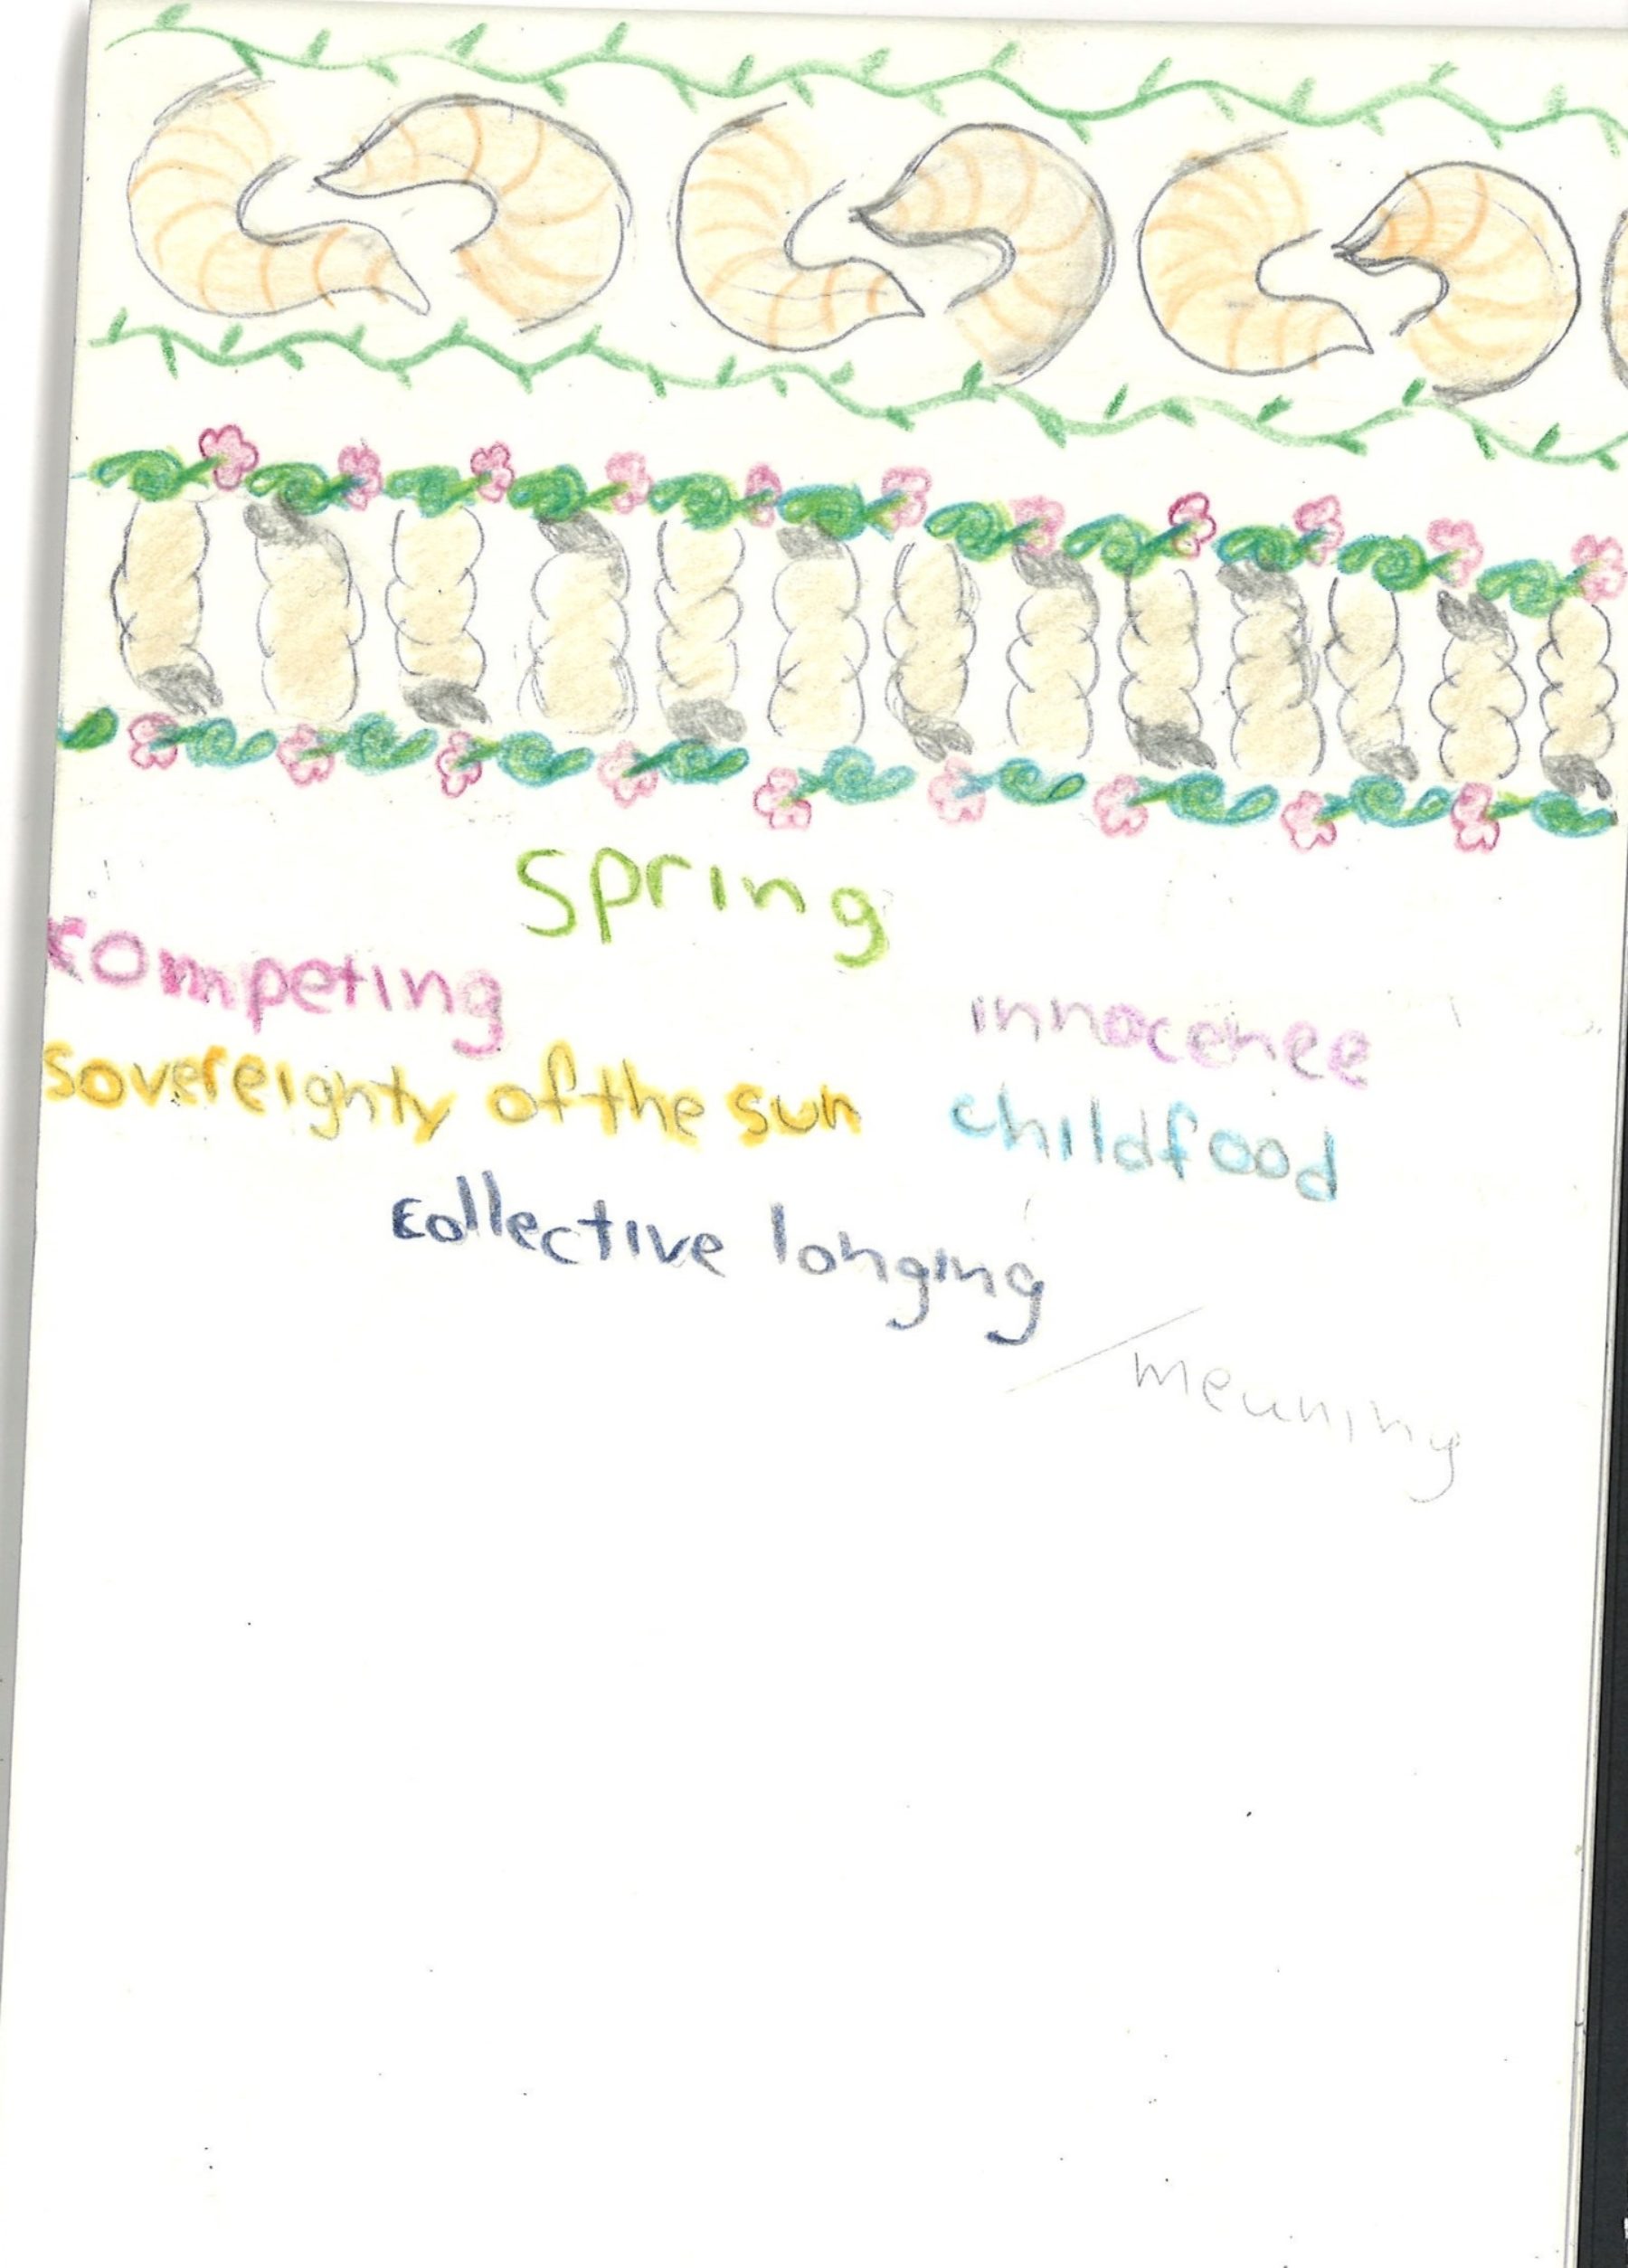 spring
competing
innocence
sovereignty of the sun
childfood
collective longing
/meaning